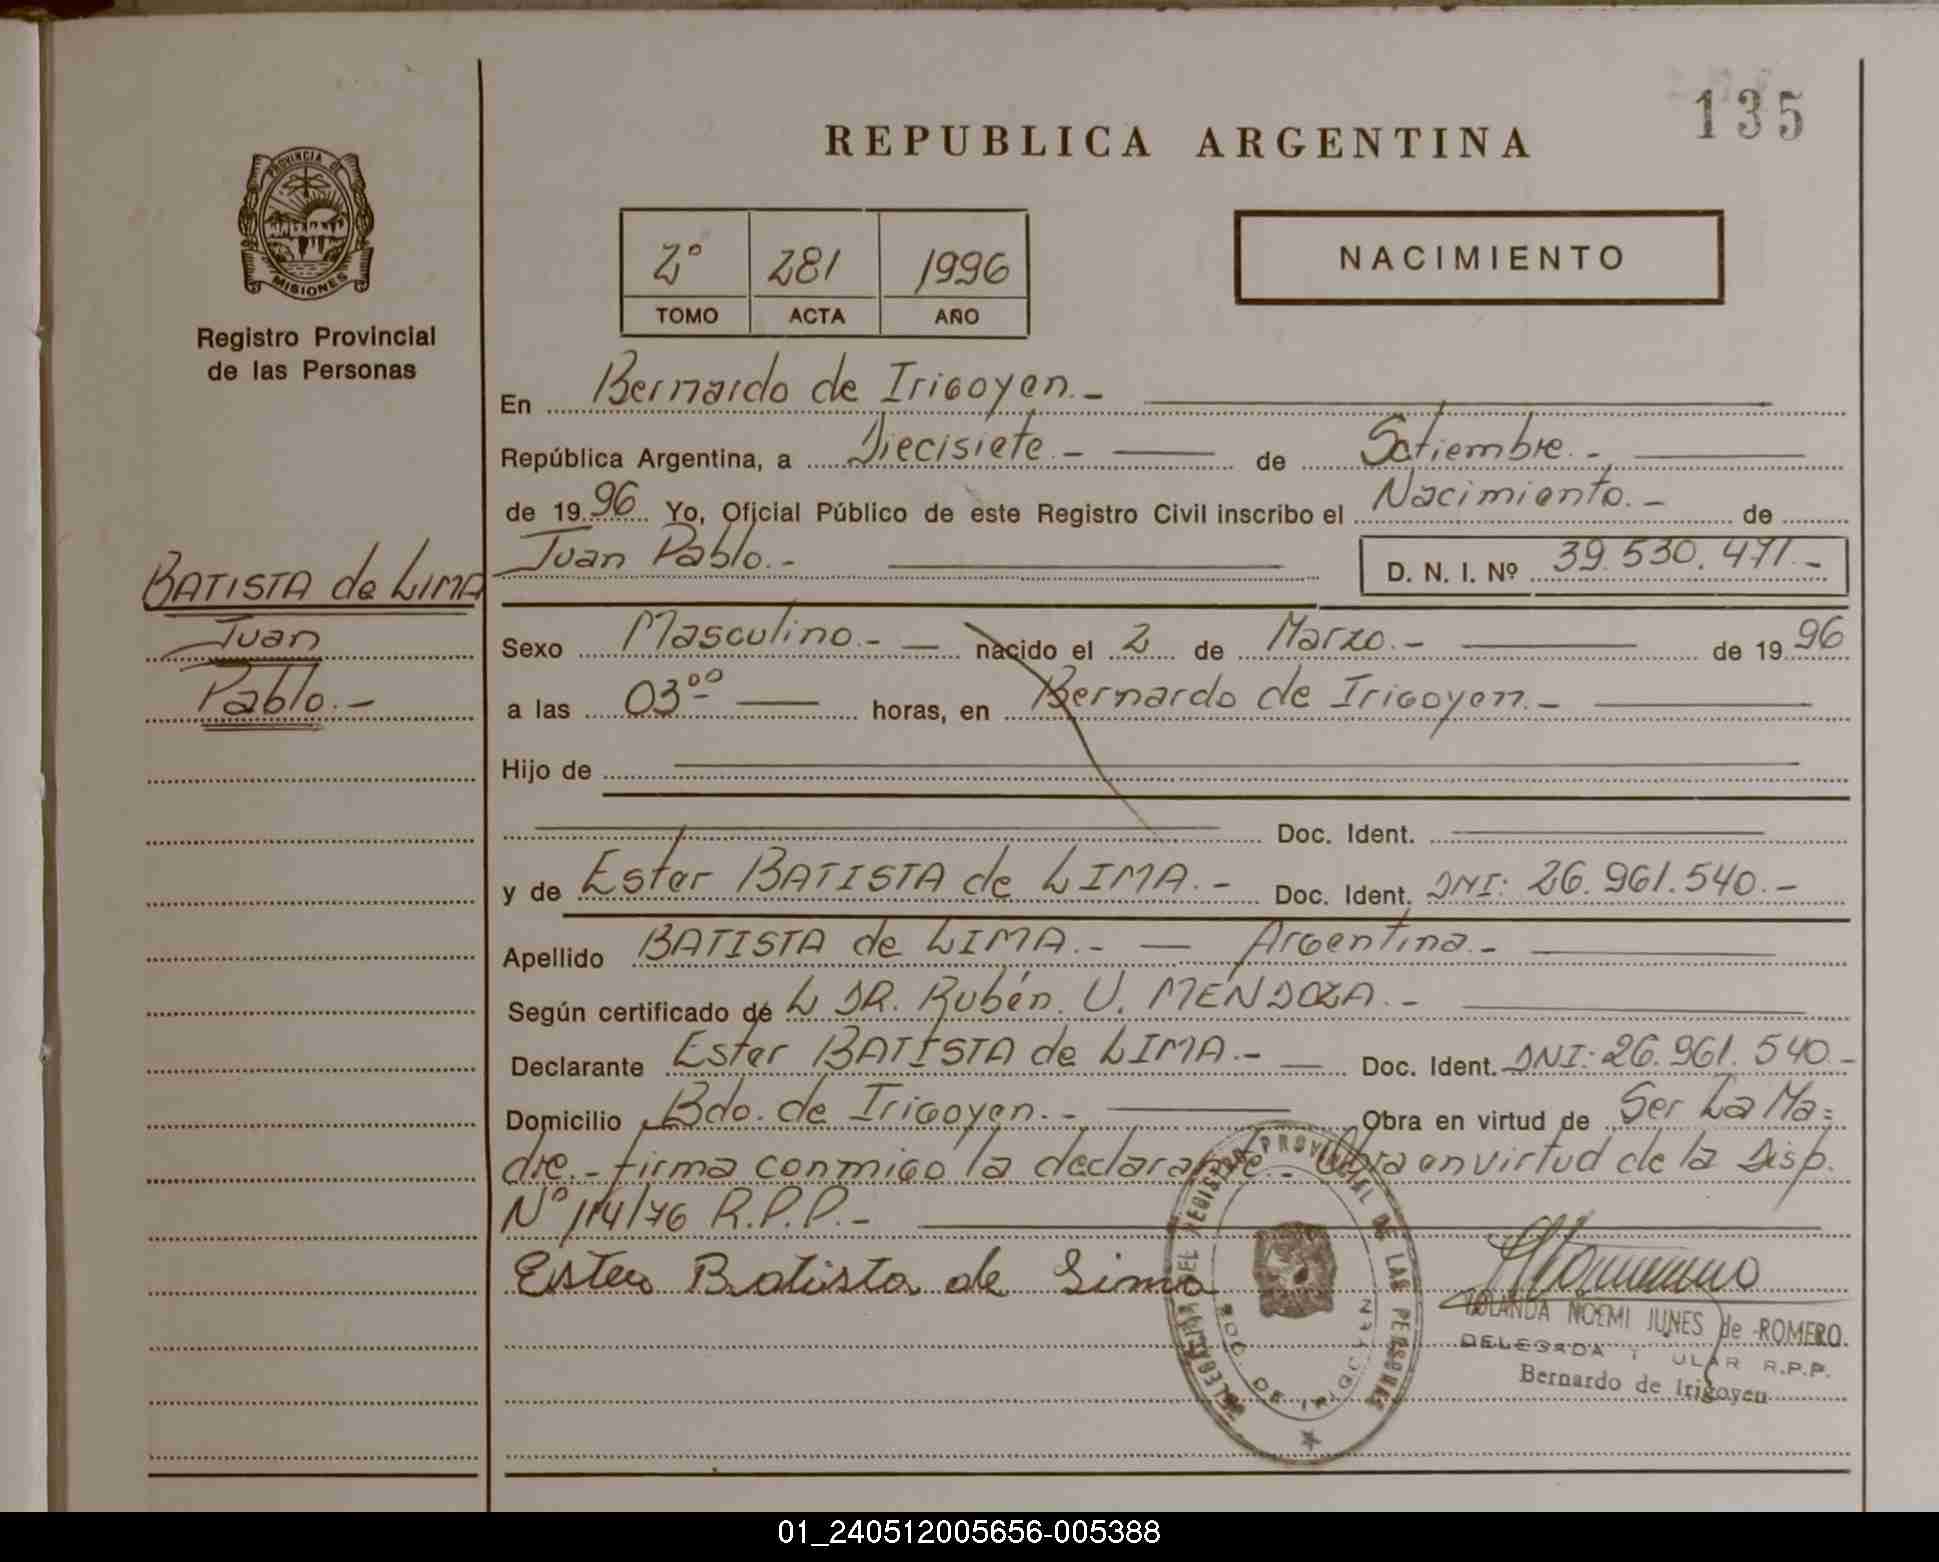 135
REPUBLICA ARGENTINA
PROVINCIA DE
MISIONES
Registro Provincial
de las Personas
2º 281 1996
TOMO ACTA AÑO
NACIMIENTO
En Bernardo de Irigoyen.-
República Argentina, a Diecisiete.- de Setiembre.-
de 1996 Yo, Oficial Público de este Registro Civil inscribo el Nacimiento.- de
Juan Pablo.- D. N. I. Nº 39.530.471.-
BATISTA de LIMA
Juan
Pablo.-
Sexo Masculino.- nacido el 2 de Marzo.- de 1996
a las 03ºº horas, en Bernardo de Irigoyen.-
Hijo de
Doc. Ident.
y de Ester BATISTA de LIMA.- Doc. Ident. DNI: 26.961.540.-
Apellido BATISTA de LIMA.- Argentina.-
Según certificado de L DR. Rubén. U. MENDOZA.-
Declarante Ester BATISTA de LIMA.- Doc. Ident. DNI: 26.961.540.-
Domicilio Bdo. de Irigoyen.- Obra en virtud de Ser La Ma=
dre.- firma conmigo la declarante.- Obra en virtud de la Disp.
Nº 114/76 R.P.P.-
Ester Batista de Lima
DELEGACION DEL REGISTRO PROVINCIAL DE LAS PERSONAS
BDO. DE IRIGOYEN
YOLANDA NOEMI JUNES de ROMERO
DELEGADA R.P.P.
Bernardo de Irigoyen
01_240512005656-005388